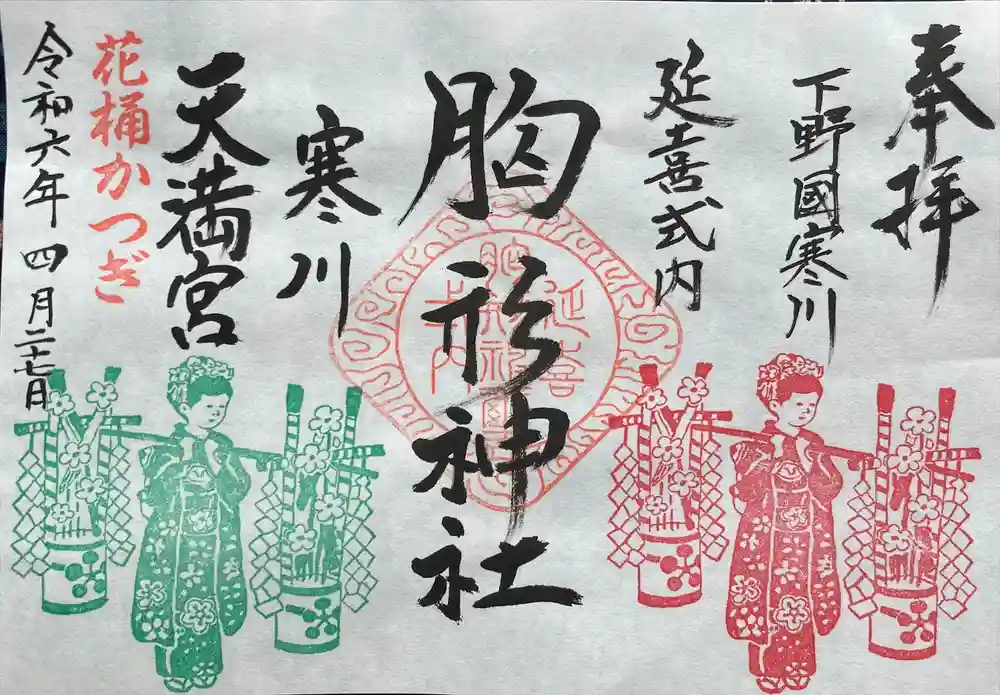 奉拝
下野國寒川
延喜式内
胸形神社
延喜
式内
寒川
天満宮
花桶かつぎ
令和六年四月二十七日